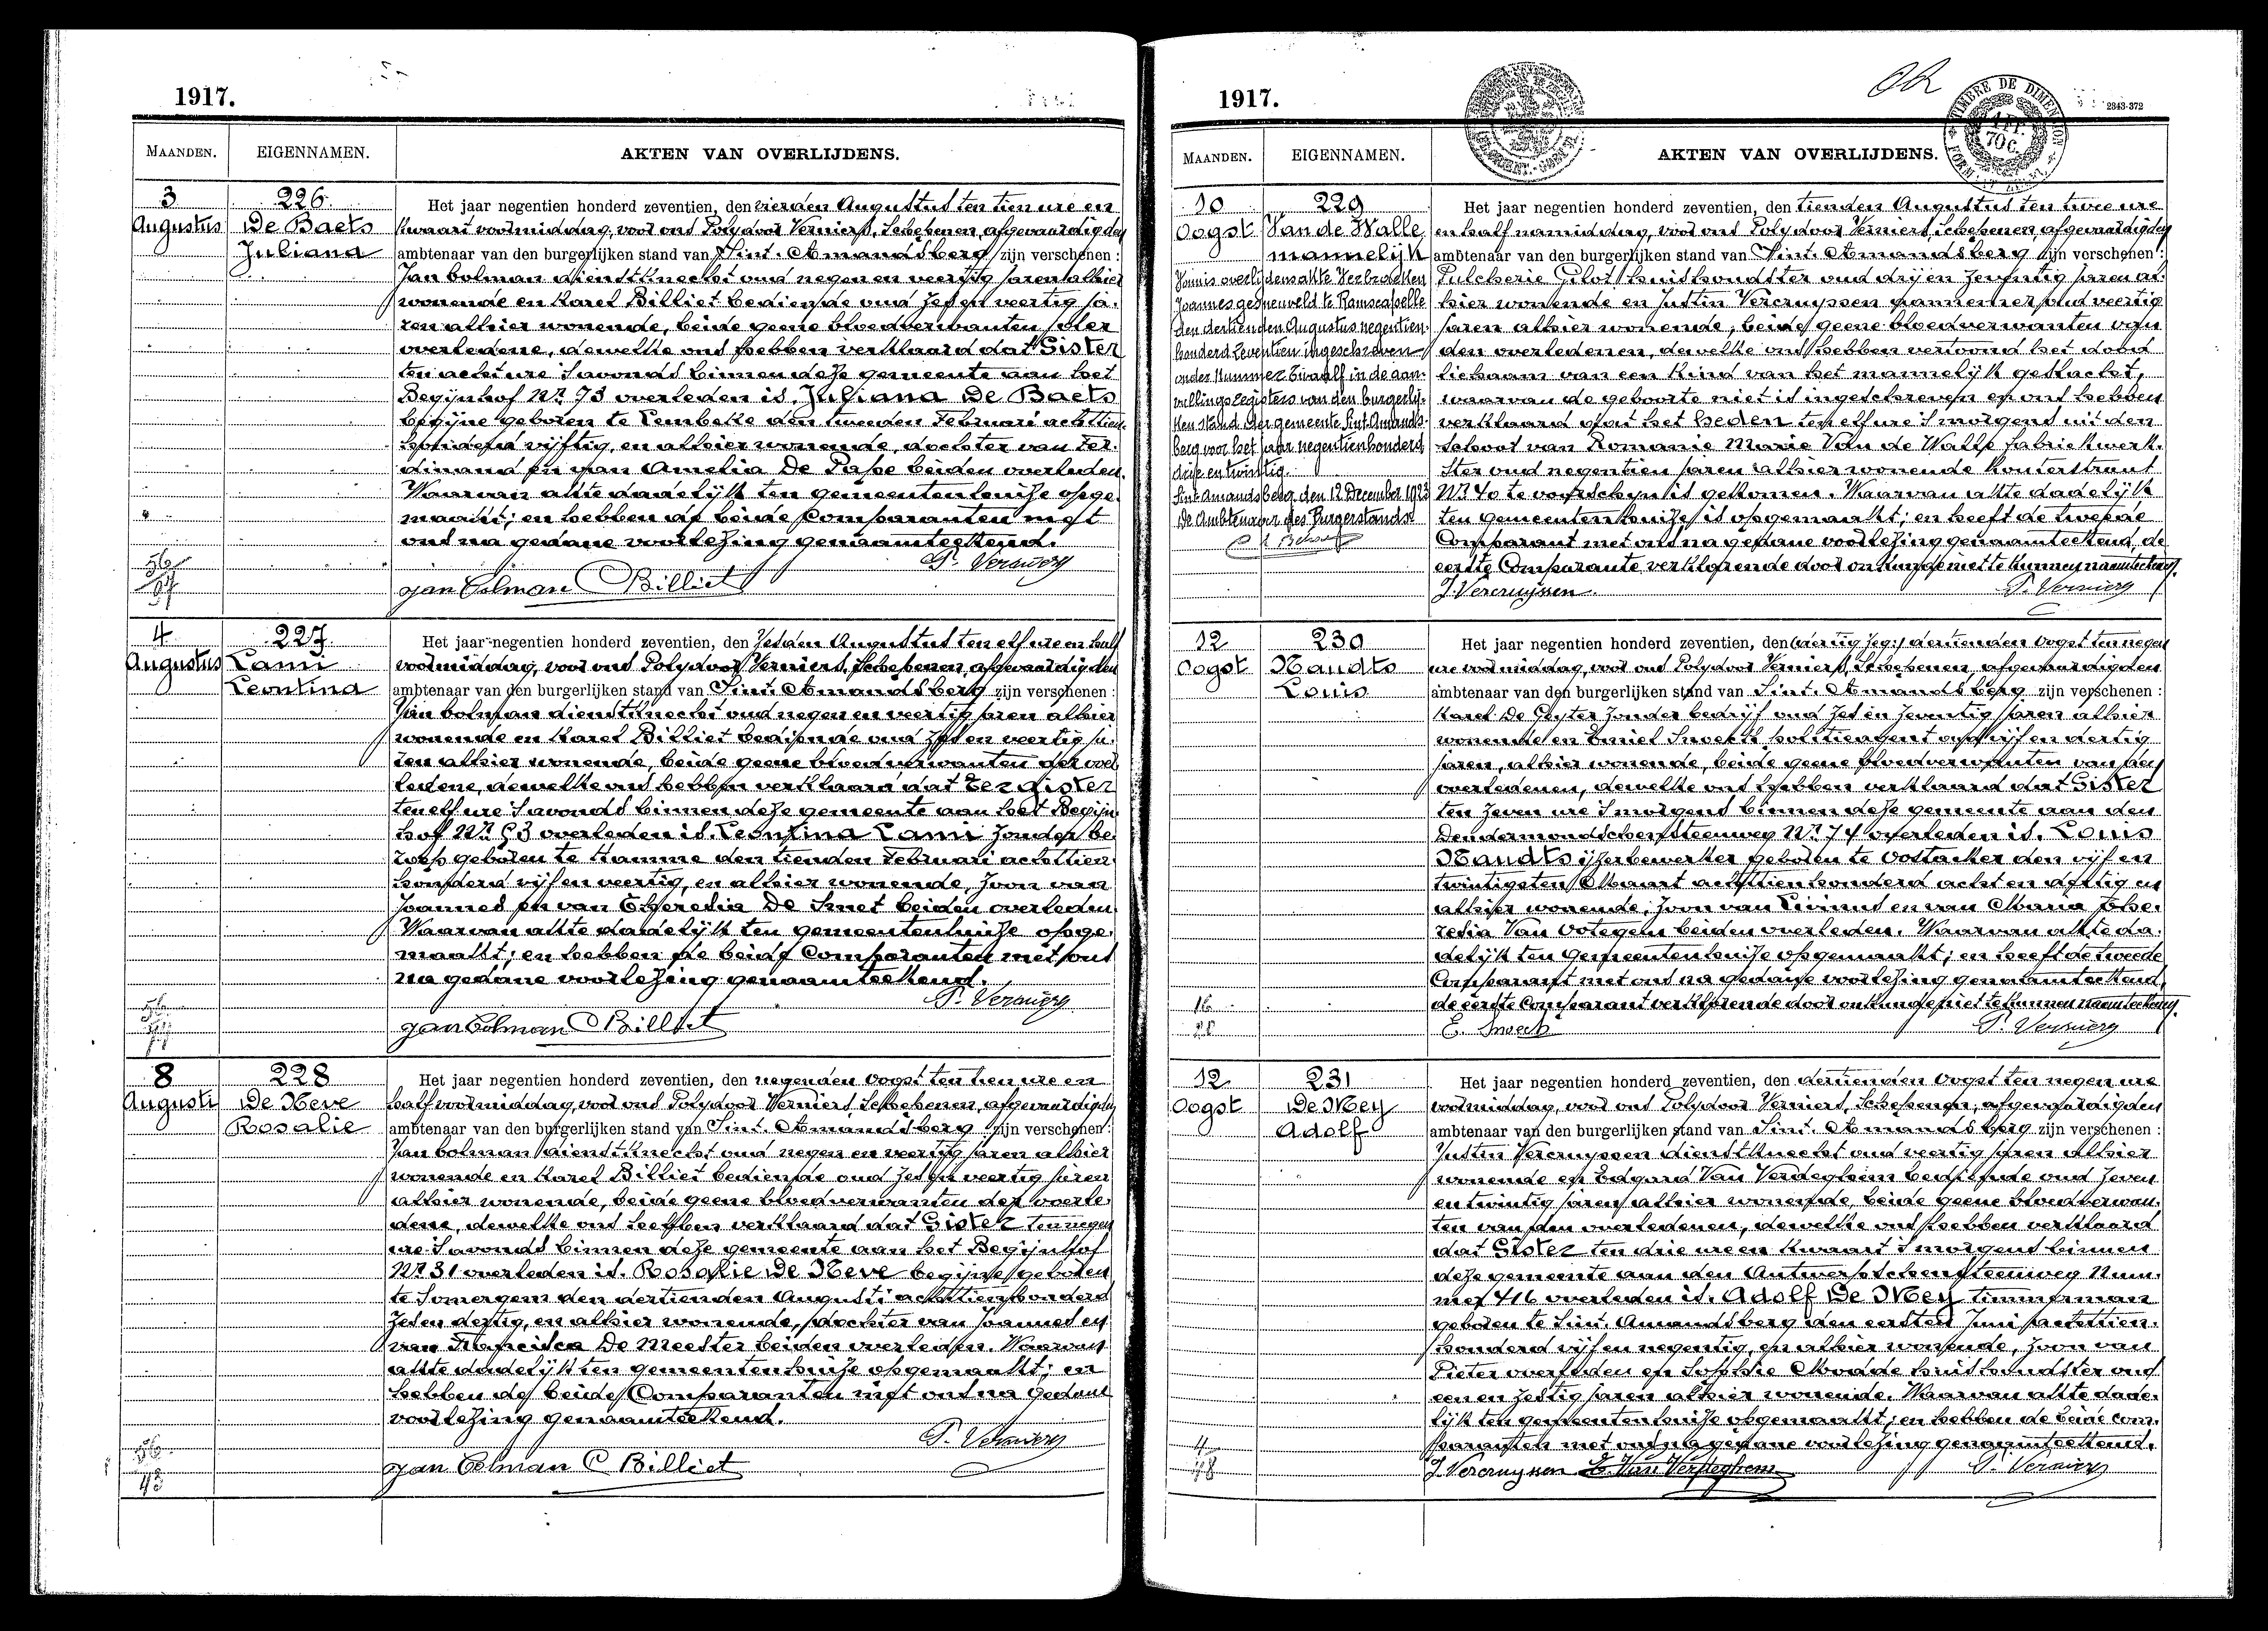 1917.
MAANDEN. EIGENNAMEN. AKTEN VAN OVERLIJDENS.
3 226 Het jaar negentien honderd zeventien, den vierden Augustus ten tien ure en
Augustus De Baets kwaart voormiddag, voor ons Polydoor Verniers, Schepenen, afgevaardigden
Juliana ambtenaar van den burgerlijken stand van Sint-Amandsberg zijn verschenen:
Jan Colman dienstknecht oud negen en veertig jaren alhier
wonende en Karel Billiet bediende oud zes en veertig ja-
ren alhier wonende, beide geene bloedverwanten der
overledene, dewelke ons hebben verklaard dat Gister
ten acht ure s'avonds binnen deze gemeente aan het
Begijnhof Nr 73 overleden is, Juliana De Baets
begijne geboren te Lembeke den tweeden Februari achttien
honderd vijftig, en alhier wonende, dochter van Fer-
dinand en van Amelia De Pape beiden overleden.
Waarvan akte dadelijk ten gemeentenhuize opge-
maakt; en hebben de beide Comparanten met
ons na gedane voorlezing genaamteekend.
P. Verniers
Jan Colman C Billiet
4 227 Het jaar negentien honderd zeventien, den zesden Augustus ten elf ure en half
Augustus Lami voormiddag, voor ons Polydoor Verniers, Schepenen, afgevaardigden
Leontina ambtenaar van den burgerlijken stand van Sint-Amandsberg zijn verschenen:
Jan Colman dienstknecht oud negen en veertig jaren alhier
wonende en Karel Billiet bediende oud zes en veertig ja-
ren alhier wonende, beide geene bloedverwanten der over-
ledene, dewelke ons hebben verklaard dat Eergister
ten elf ure s'avonds binnen deze gemeente aan het Begijn-
hof Nr 93 overleden is, Leontina Lami zonder be-
roep geboren te Hamme den tienden Februari achttien
honderd vijf en veertig, en alhier wonende, zoon van
Joannes en van Theresia De Smet beiden overleden.
Waarvan akte dadelijk ten gemeentenhuize opge-
maakt; en hebben de beide Comparanten met ons
na gedane voorlezing genaamteekend.
P. Verniers
Jan Colman C Billiet
8 228 Het jaar negentien honderd zeventien, den negenden Oogst ten tien ure en
Augusti De Neve half voormiddag, voor ons Polydoor Verniers, Schepenen, afgevaardigden
Rosalie ambtenaar van den burgerlijken stand van Sint-Amandsberg zijn verschenen:
Jan Colman dienstknecht oud negen en veertig jaren alhier
wonende en Karel Billiet bediende oud zes en veertig jaren
alhier wonende, beide geene bloedverwanten der overle-
dene, dewelke ons hebben verklaard dat Gister ten negen
ure s'avonds binnen deze gemeente aan het Begijnhof
Nr 31 overleden is, Rosalie De Neve begijne geboren
te Somergem den dertienden Augusti achttien honderd
zes en dertig, en alhier wonende, dochter van Joannes en
van De Meester beiden overleden. Waarvan
akte dadelijk ten gemeentenhuize opgemaakt; en
hebben de beide Comparanten met ons na gedane
voorlezing genaamteekend.
P. Verniers
Jan Colman C Billiet
1917.
2343-372
MAANDEN. EIGENNAMEN. AKTEN VAN OVERLIJDENS.
10 229 Het jaar negentien honderd zeventien, den tienden Augustus ten twee ure
Oogst Van de Walle en half namiddag, voor ons Polydoor Verniers, Schepenen, afgevaardigden
mannelijk ambtenaar van den burgerlijken stand van Sint-Amandsberg zijn verschenen:
Pulcherie Gilot huishoudster oud drij en zeventig jaren al-
hier wonende en Justin Vercruyssen oud veertig
jaren alhier wonende, beide geene bloedverwanten van
den overledenen, dewelke ons hebben vertoond het dood
lichaam van een kind van het mannelijk geslacht,
waarvan de geboorte niet is ingeschreven en ons hebben
verklaard dat het heden ten elf ure s'morgens uit den
schoot van Romanie Marie Van de Walle fabriekwerk-
ster oud negentien jaren alhier wonende Kouterstraat
Nr 40 te voorschijn is gekomen. Waarvan akte dadelijk
ten gemeentenhuize is opgemaakt; en heeft de tweede
Comparant met ons na gedane voorlezing genaamteekend, de
eerste Comparante verklarende door onkunde niet te kunnen naamteekenen.
J. Vercruyssen P. Verniers
Joannes gesneuveld te Ramscapelle
den dertienden Augustus negentien-
honderd zeventien ingeschreven
onder Nummer twaalf in de aan-
vullingsregisters van den burgerlij-
ken stand der gemeente Sint Amands-
berg voor het jaar negentienhonderd
drie en twintig.
Sint Amandsberg, den 12 December 1923
De Ambtenaar des Burgerstands
12 230 Het jaar negentien honderd zeventien, den dertienden Oogst ten negen
Oogst Handts ure voormiddag, voor ons Polydoor Verniers, Schepenen, afgevaardigden
Louis ambtenaar van den burgerlijken stand van Sint-Amandsberg zijn verschenen:
Karel De Geyter zonder bedrijf oud zes en zeventig jaren alhier
wonende en Emiel Snoeck politieagent oud vijf en dertig
jaren, alhier wonende, beide geene bloedverwanten van den
overledenen, dewelke ons hebben verklaard dat Gister
ten zeven ure s'morgens binnen deze gemeente aan den
Dendermondschensteenweg Nr 74 overleden is, Louis
Handts ijzerbewerker geboren te Oostacker den vijf en
twintigsten Maart achttien honderd acht en dertig en
alhier wonende, zoon van Livinus en van Maria The-
resia Van Ootegem beiden overleden. Waarvan akte da-
delijk ten gemeentenhuize opgemaakt; en heeft de tweede
Comparant met ons na gedane voorlezing genaamteekend,
de eerste Comparant verklarende door onkunde niet te kunnen naamteekenen.
E. Snoeck P. Verniers
12 231 Het jaar negentien honderd zeventien, den dertienden Oogst ten negen ure
Oogst De Mey voormiddag, voor ons Polydoor Verniers, Schepenen, afgevaardigden
Adolf ambtenaar van den burgerlijken stand van Sint-Amandsberg zijn verschenen:
Justin Vercruyssen dienstknecht oud veertig jaren alhier
wonende en Edgard Van Verdeghem bediende oud zeven
en twintig jaren alhier wonende, beide geene bloedverwan-
ten van den overledenen, dewelke ons hebben verklaard
dat Gister ten drie ure en kwaart s'morgens binnen
deze gemeente aan den Antwerpschensteenweg Num-
mer 416 overleden is, Adolf De Mey timmerman
geboren te Sint-Amandsberg den eersten Juni achttien-
honderd vijf en negentig, en alhier wonende, zoon van
Pieter overleden en Sophie huishoudster oud
een en zestig jaren alhier wonende. Waarvan akte dade-
lijk ten gemeentenhuize opgemaakt; en hebben de beide com-
paranten met ons na gedane voorlezing genaamteekend.
J. Vercruyssen E. Van Verdeghem P. Verniers